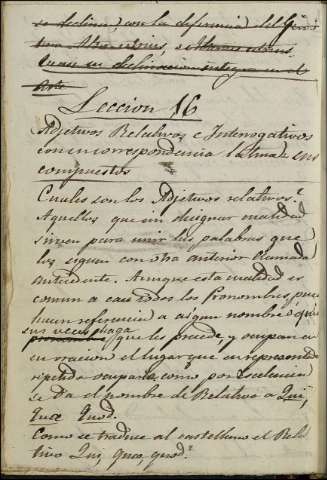 se declina, con la diferencia del Geni-
tivo
Vease su declinacion integra en el
Arte
Leccion 16
Adjetivos Relativos e Interrogativos
con su correspondencia latina y sus
compuestos
Cuales son los Adjetivos relativos?
Aquellos que sin designar cualidad
sirven para unir las palabras que
les siguen con otra anterior llamada
antecedente. Aunque esta cualidad es
comun a casi todos los Pronombres, pues
hacen referencia a algun nombre o que
sus veces haga
pronombre que les precede, y ocupan en
su oracion el lugar que su representado
repetido ocuparia, como por Excelencia
se da el nombre de Relativo a Qui,
Quae Quod.
Como se traduce al castellano el Rela-
tivo Qui, quae, quod?